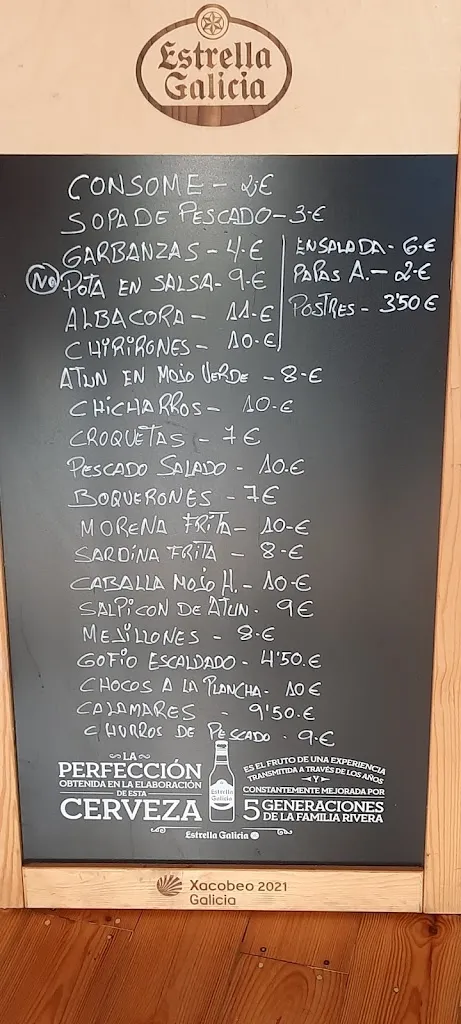 Estrella
Galicia
CONSOME - 2€
SOPA DE PESCADO - 3-€
GARBANZAS - 4-€
No POTA EN SALSA - 9-€
ALBACORA - 11-€
CHIRIRONES - 10-€
ENSALADA - 6-€
PAPAS A. - 2-€
POSTRES - 3'50 €
ATUN EN MOJO VERDE - 8-€
CHICHARROS - 10-€
CROQUETAS - 7 €
PESCADO SALADO - 10-€
BOQUERONES - 7€
MORENA FRITA - 10-€
SARDINA FRITA - 8-€
CABALLA MOJO H. - 10-€
SALPICON DE ATUN. 9€
MEJILLONES - 8-€
GOFIO ESCALDADO - 4'50.€
CHOCOS A LA PLANCHA - 10€
CALAMARES - 9'50.€
CHURROS DE PESCADO. 9-€
LA
PERFECCIÓN
OBTENIDA EN LA ELABORACIÓN
DE ESTA
CERVEZA
Estrella
Galicia
ES EL FRUTO DE UNA EXPERIENCIA
TRANSMITIDA A TRAVÉS DE LOS AÑOS
Y
CONSTANTEMENTE MEJORADA POR
5 GENERACIONES
DE LA FAMILIA RIVERA
Estrella Galicia
Xacobeo 2021
Galicia